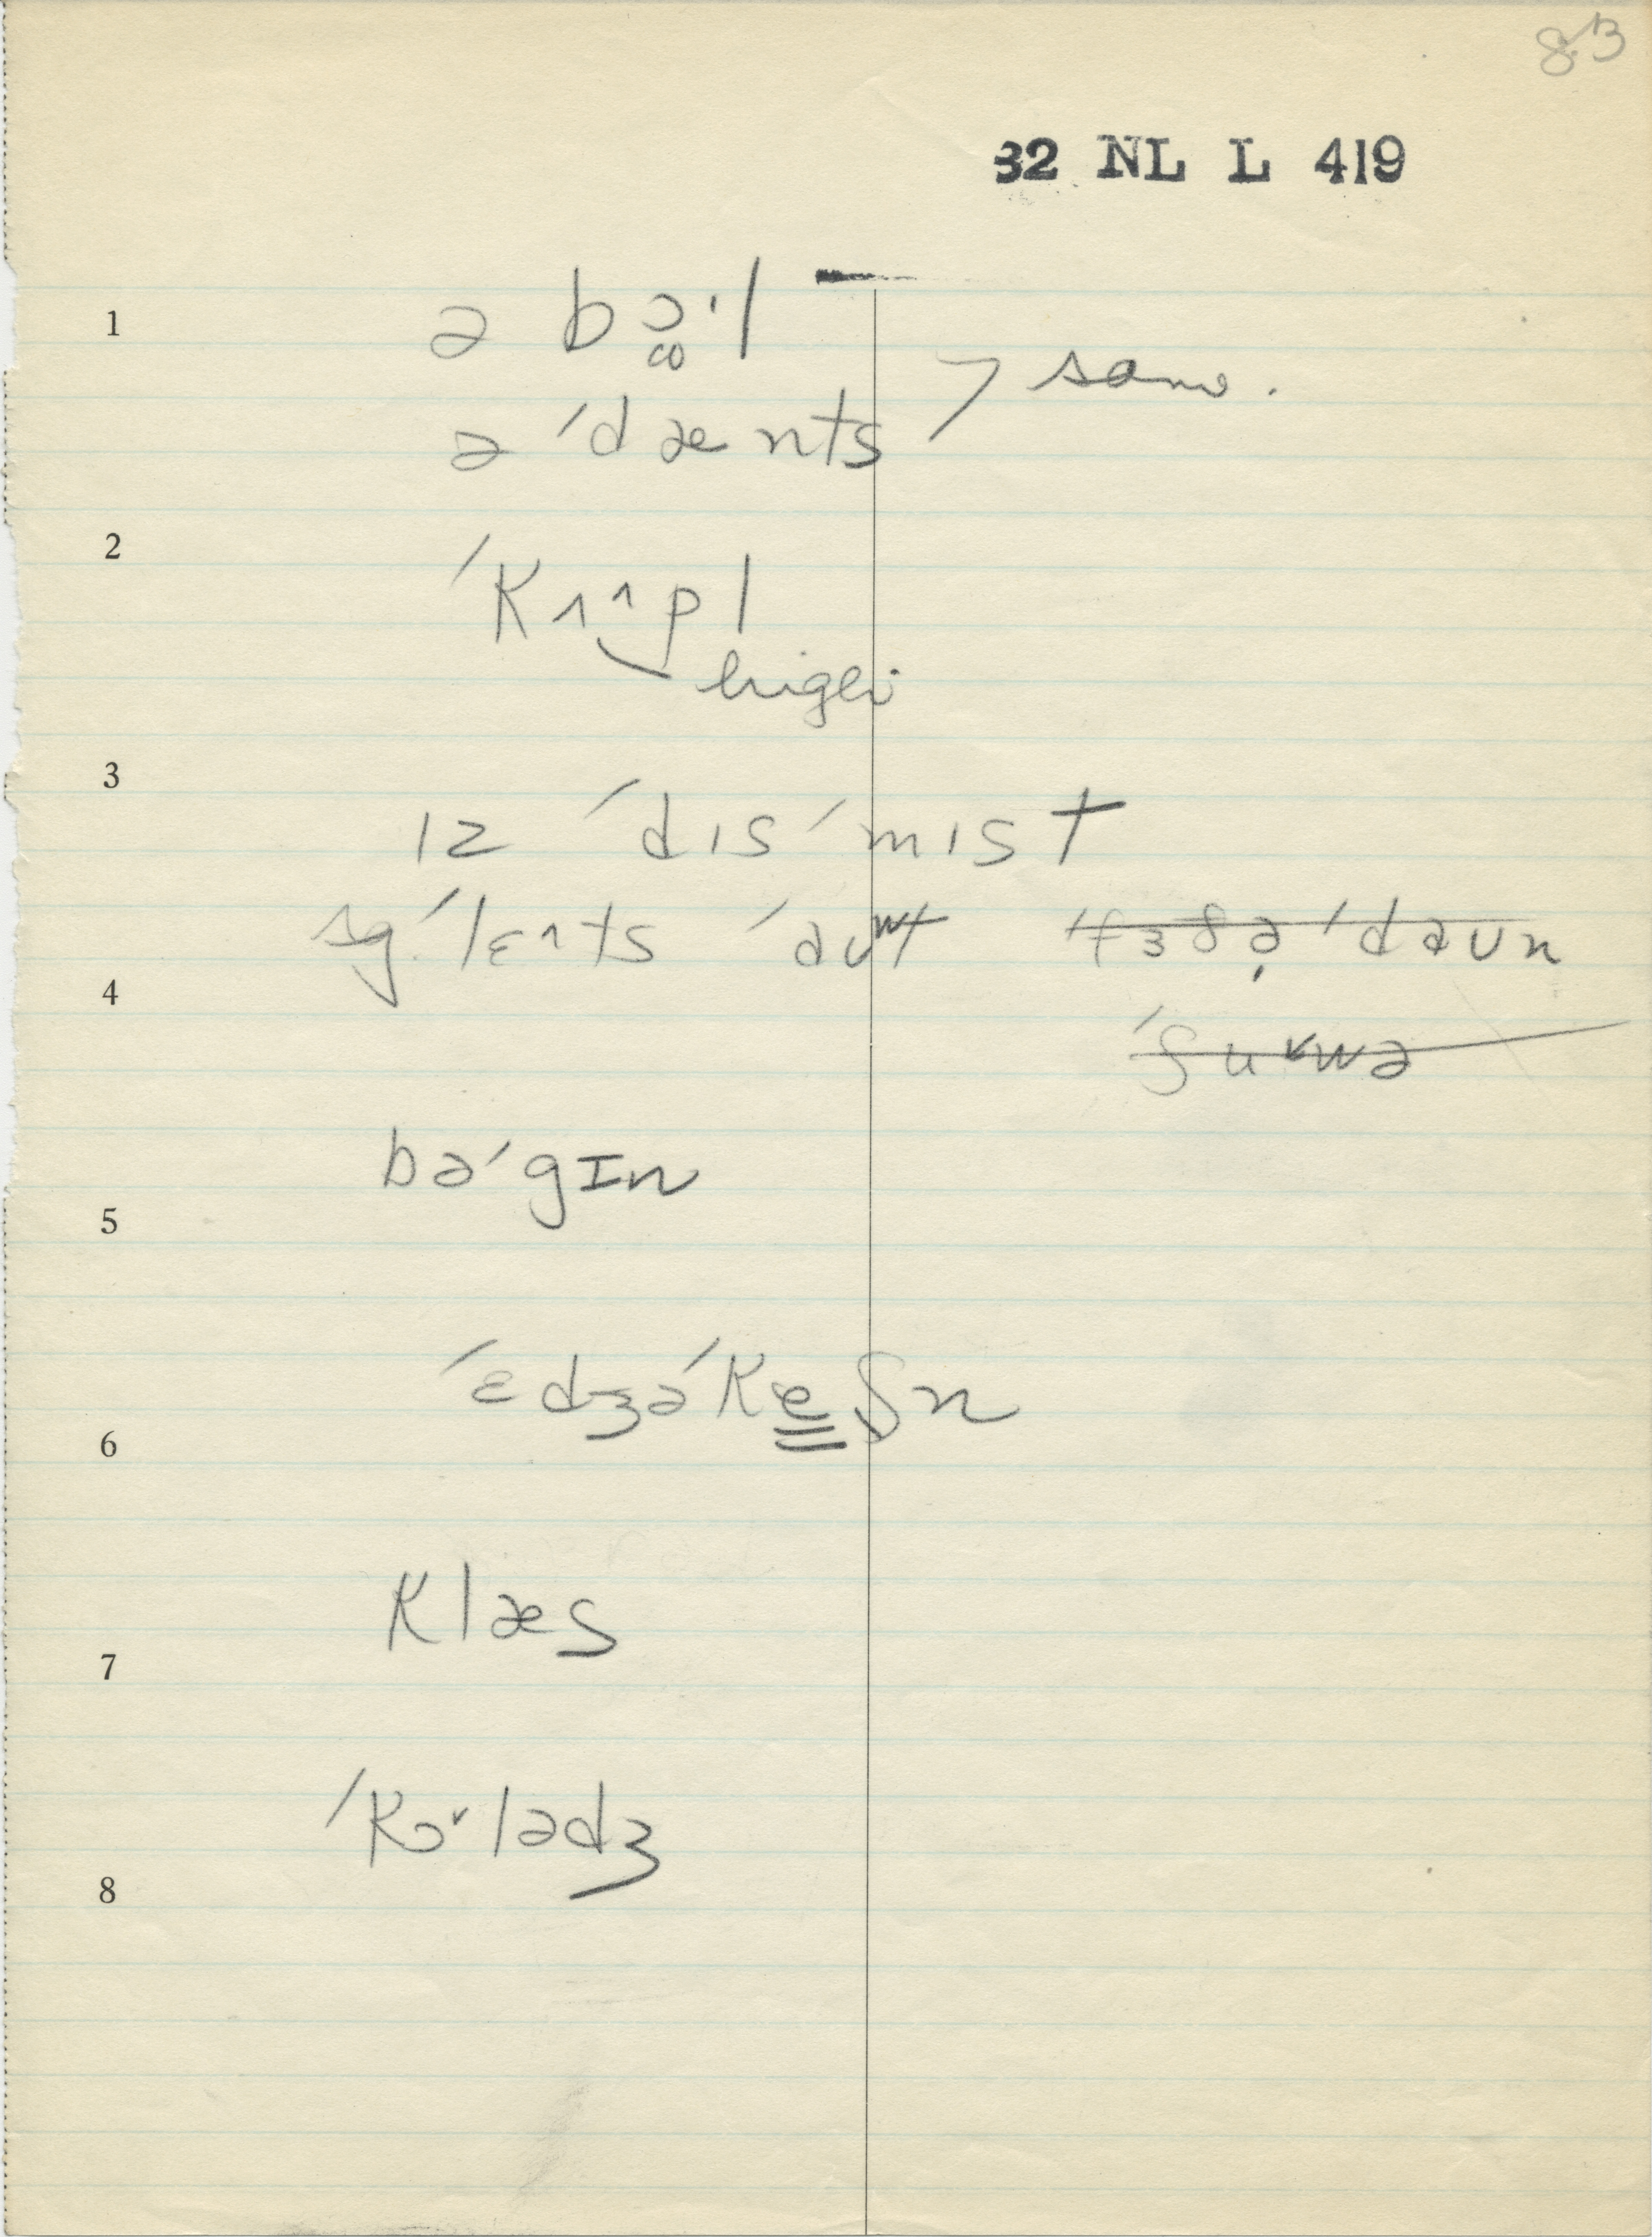 83
32 NL L 419
1 ə bɔ·l
same.
ə ˈdænts
2 ˈkʌ^pl
higher
3 ɪz ˈdɪsˈmɪst
sg. ˈlɛ^ts ˈaʊwt ˈfɜðə ˈdəʊn
4 ˈʃuvwə
bəˈgɪn
5
ˈɛdʒəˈkeʃn
6
klæs
7
ˈkɔvlədʒ
8